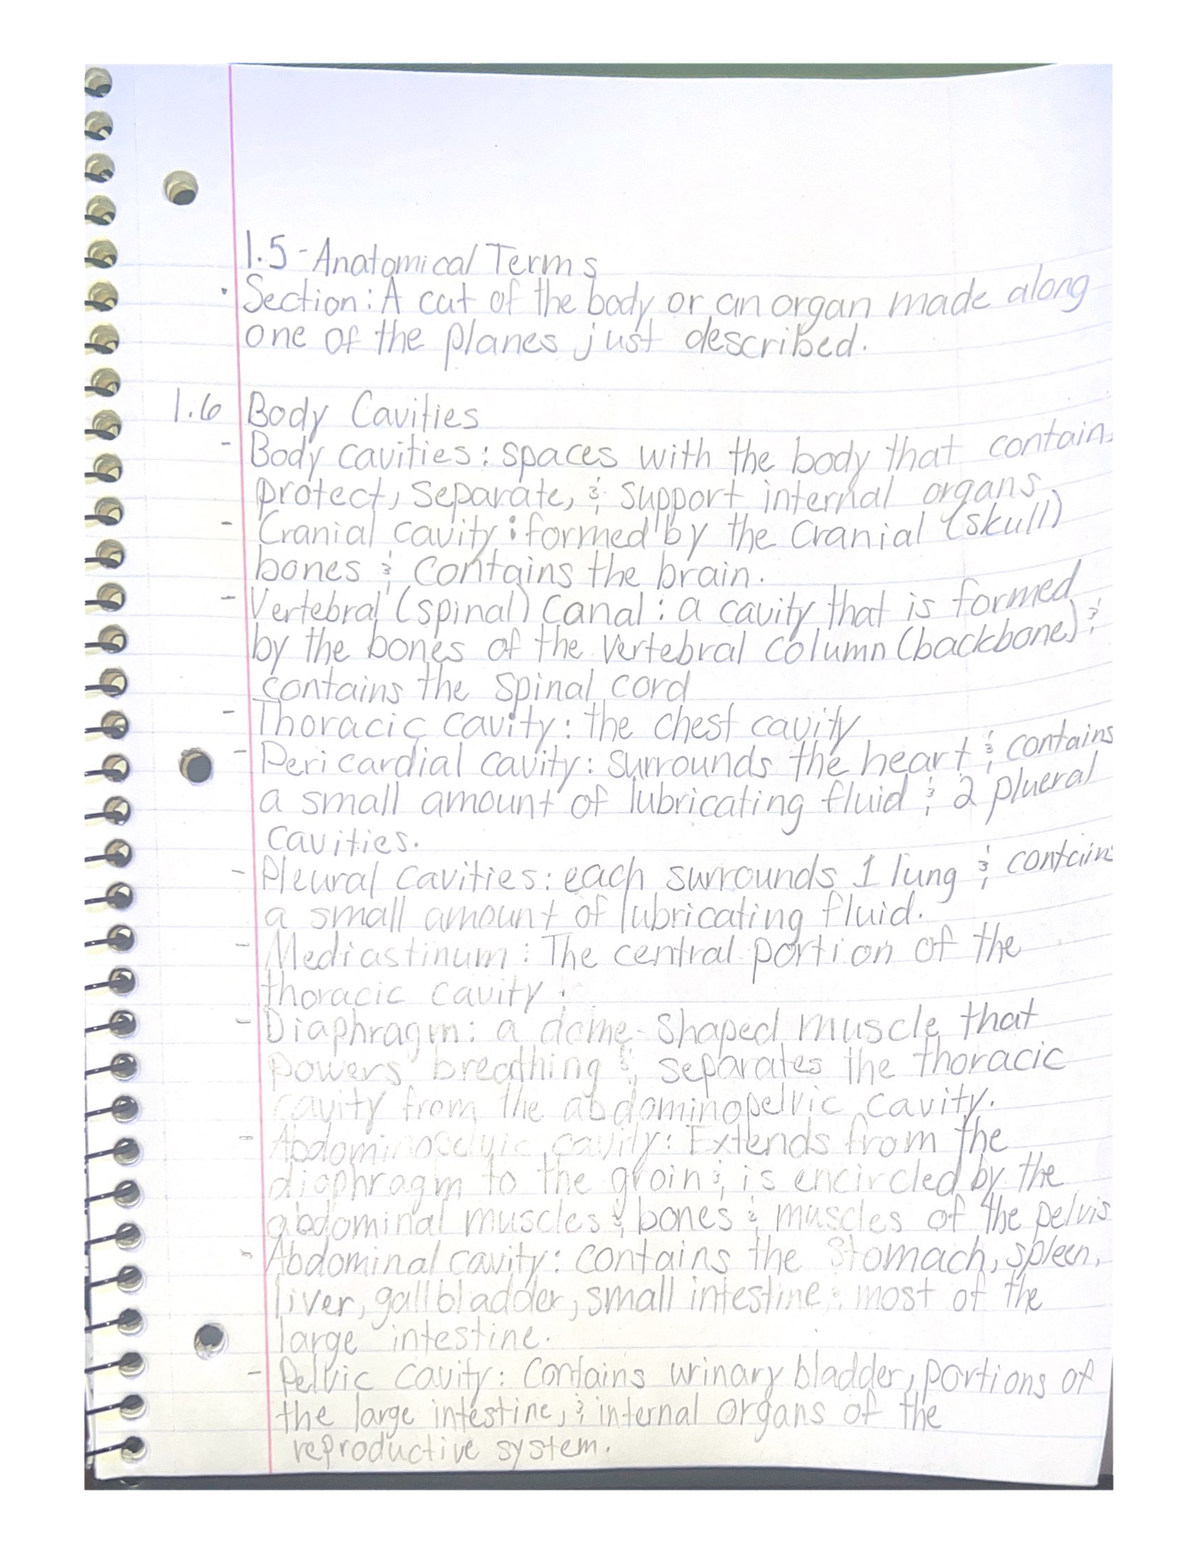 1.5 - Anatomical Terms
• Section: A cut of the body or an organ made along
one of the planes just described.
1.6 Body Cavities
- Body cavities: spaces with the body that contain,
protect, separate, & support internal organs.
- Cranial cavity: formed by the cranial (skull)
bones & contains the brain.
- Vertebral (spinal) Canal: a cavity that is formed
by the bones of the vertebral column (backbone) &
contains the spinal cord
- Thoracic cavity: the chest cavity
- Pericardial cavity: surrounds the heart & contains
a small amount of lubricating fluid & 2 plueral
cavities.
- Pleural cavities: each surrounds 1 lung & contains
a small amount of lubricating fluid.
- Mediastinum: The central portion of the
thoracic cavity.
- Diaphragm: a dome-shaped muscle that
powers breathing & separates the thoracic
cavity from the abdominopelvic cavity.
- Abdominopelvic cavity: Extends from the
diaphragm to the groin & is encircled by the
abdominal muscles & bones & muscles of the pelvis
- Abdominal cavity: contains the stomach, spleen,
liver, gallbladder, small intestine & most of the
large intestine.
- Pelvic cavity: Contains urinary bladder, portions of
the large intestine, & internal organs of the
reproductive system.